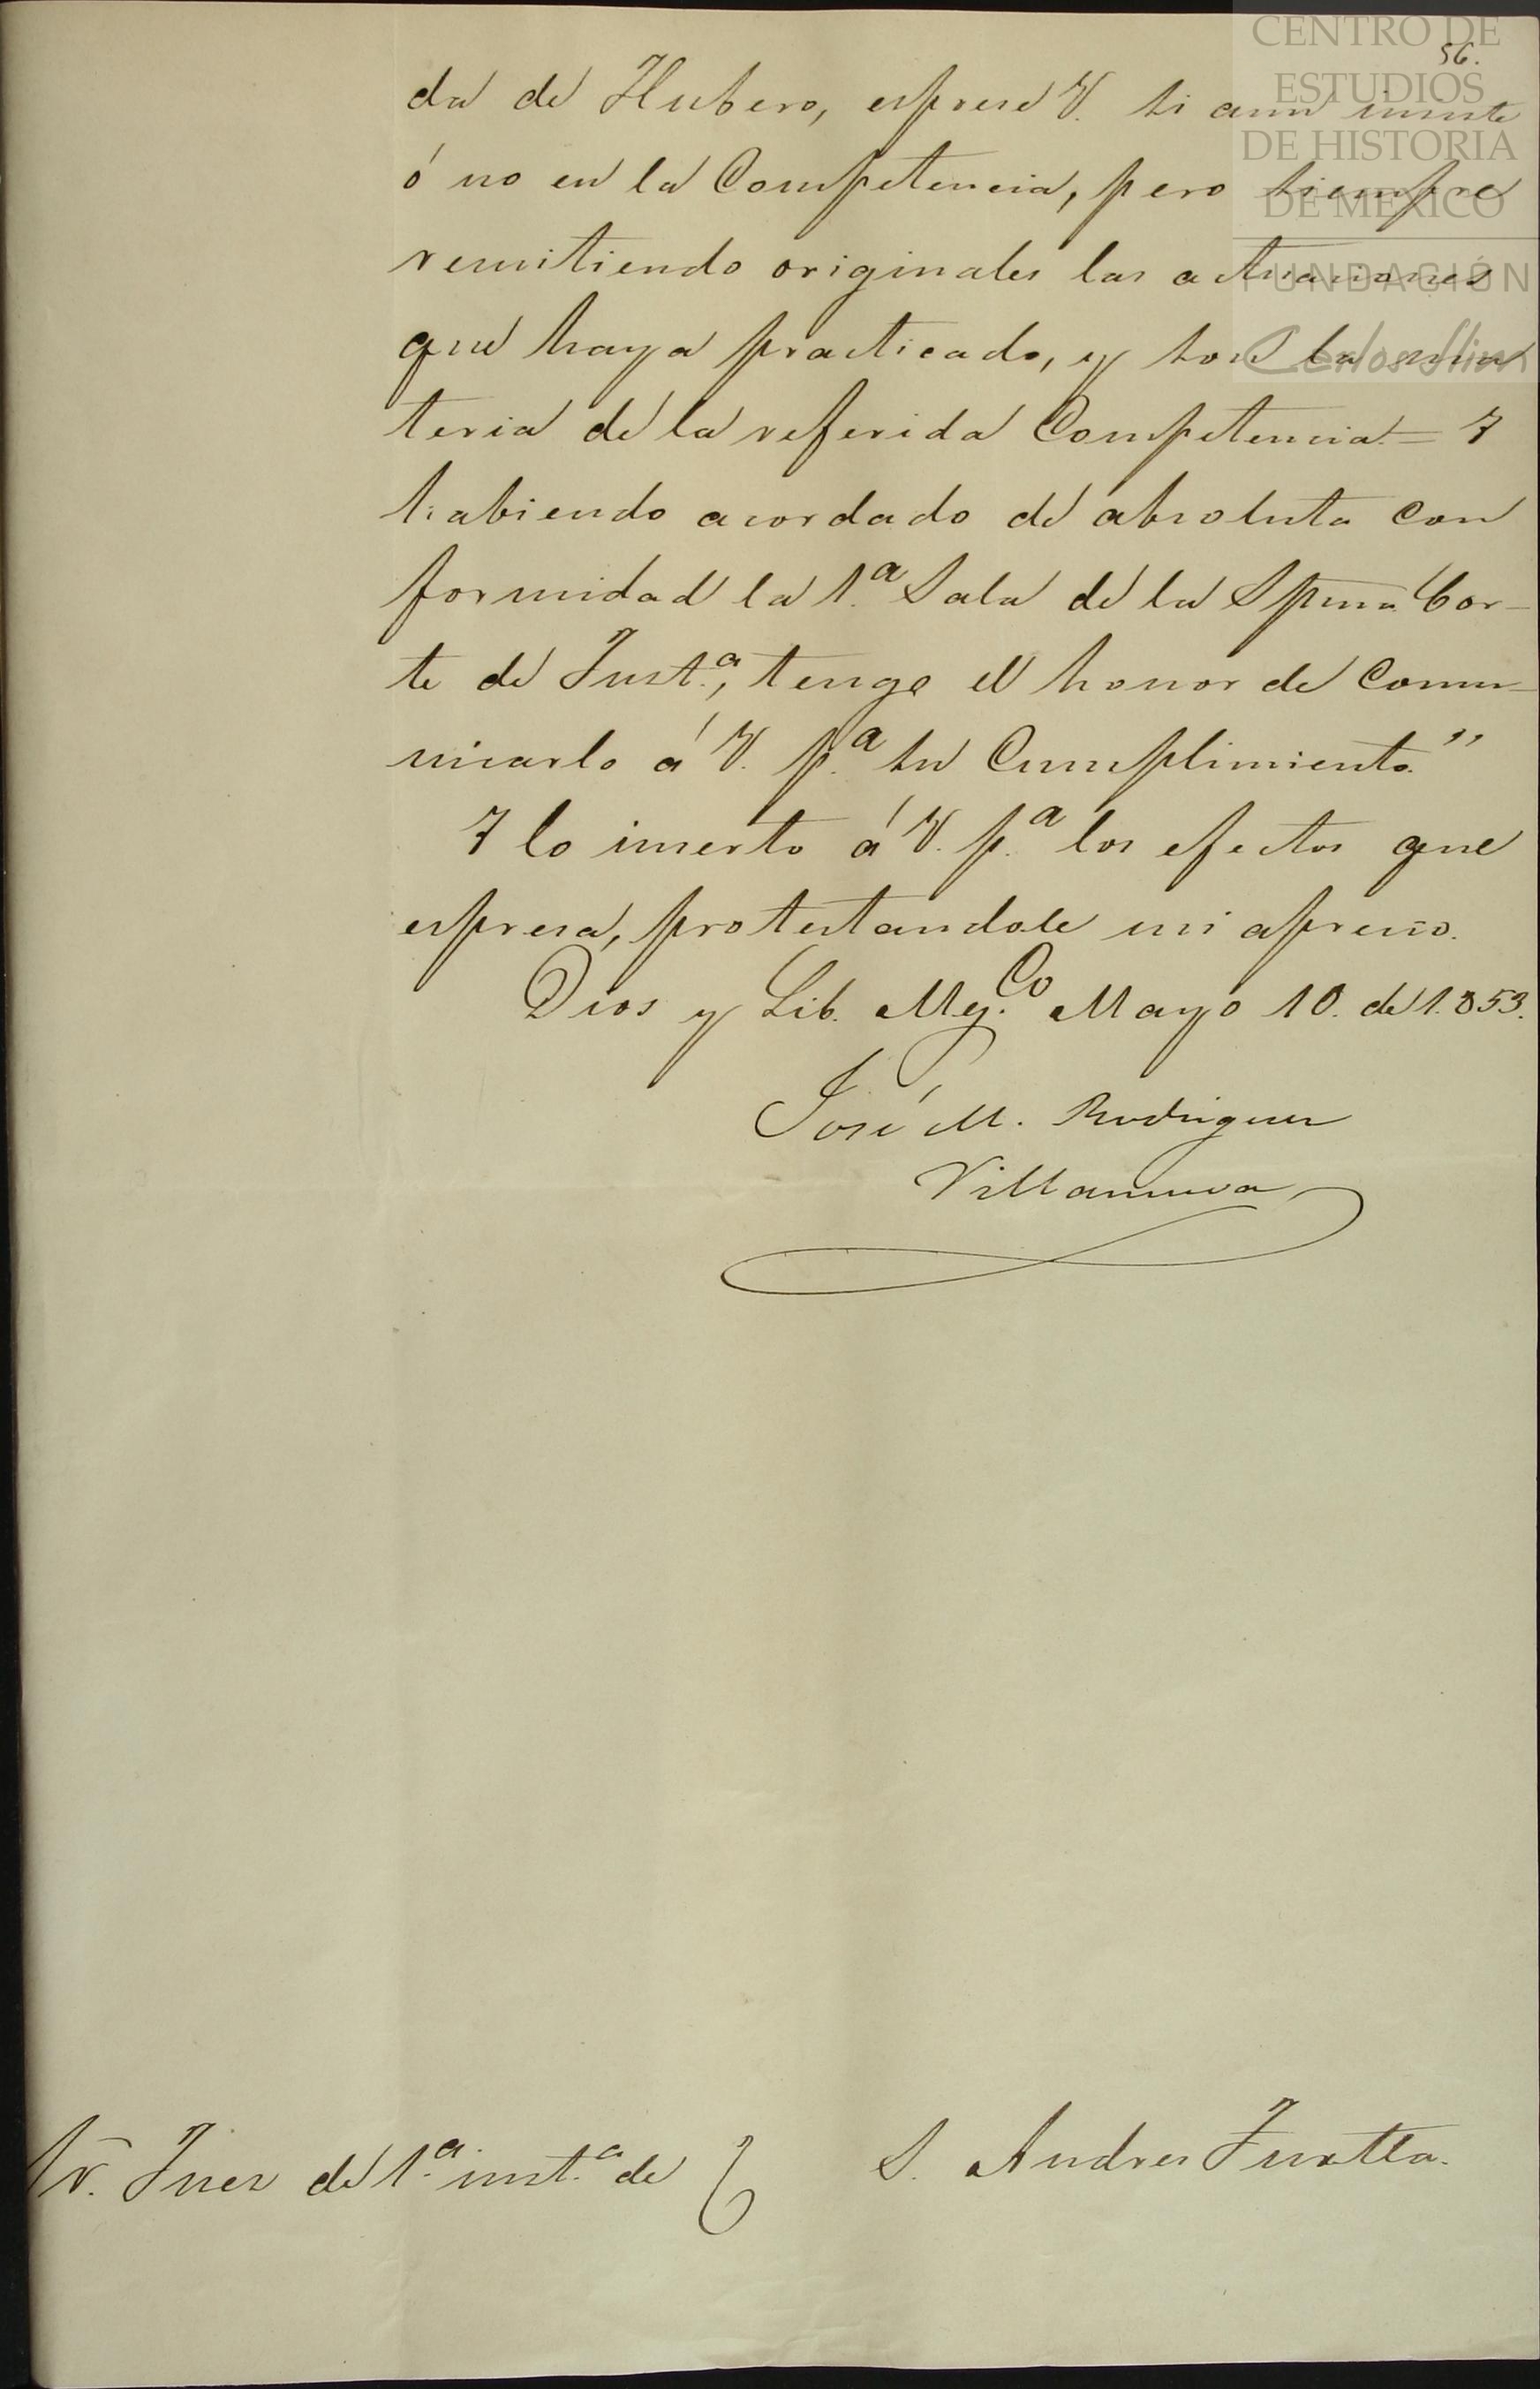 CENTRO DE
56.
ESTUDIOS
DE HISTORIA
DE MÉXICO
FUNDACIÓN
Carlos Slim
da de Hubero, esprese V. si aun insiste
ó no en la Competencia, pero siempre
remitiendo originales las actuaciones
que haya practicado, y son la ma
teria de la referida Competencia.= Y
habiendo acordado de absoluta con
formidad la 1.ª Sala de la Spma Cor-
te de Just.ª, tengo el honor de comu-
nicarlo á V. p.ª su Cumplimiento."
Y lo inserto á V. p.ª los efectos que
espresa, protestandole mi aprecio.
Dios y Lib. Mej.co Mayo 10. de 1.853.
José M. Rodriguez
Villanueva
Sr. Juez de 1.ª inst.ª de S. Andres Tuxtla.